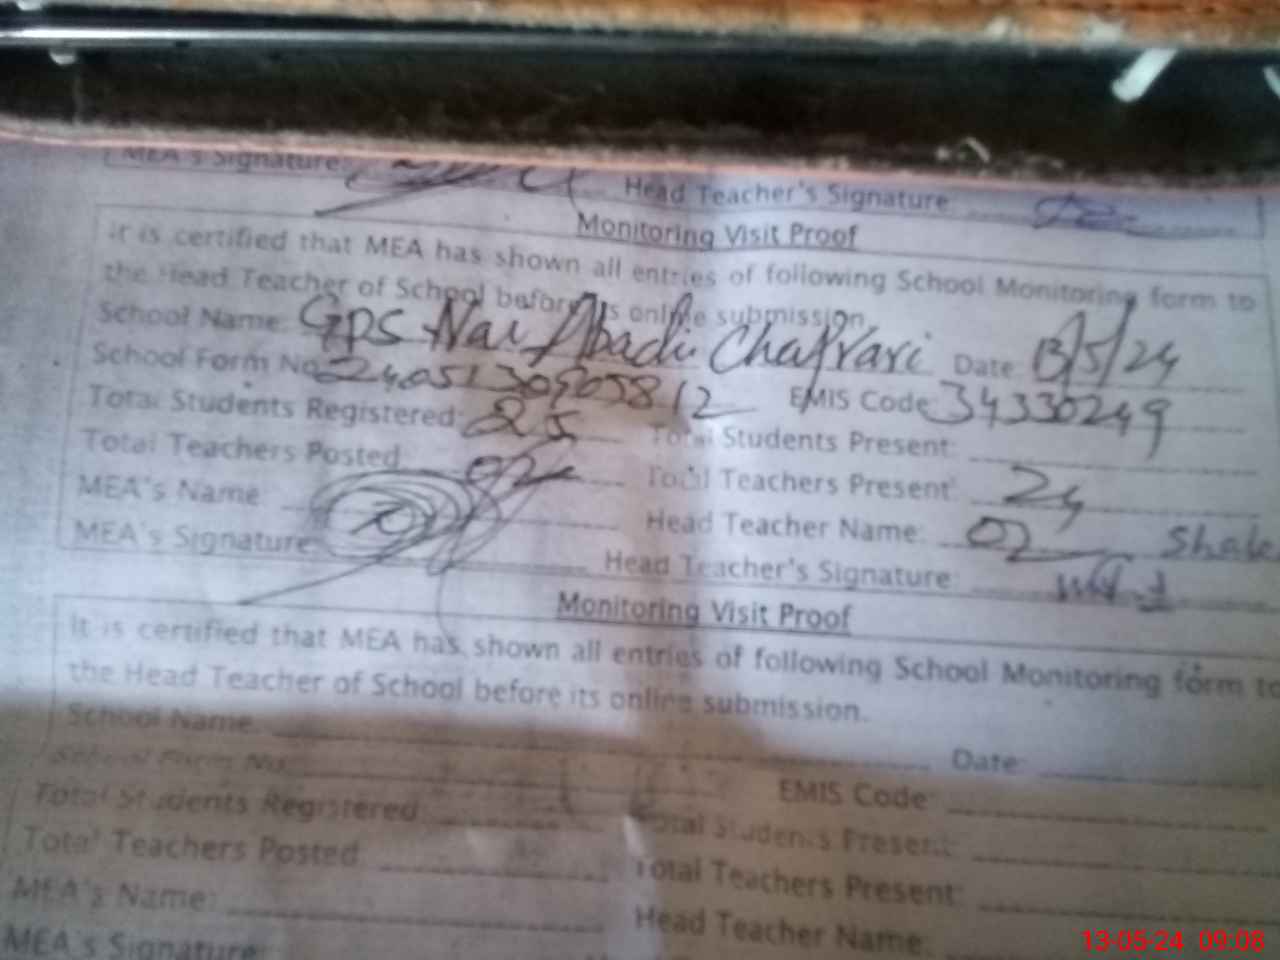 MEA's Signature: Head Teacher's Signature:
Monitoring Visit Proof
It is certified that MEA has shown all entries of following School Monitoring form to
the Head Teacher of School before its online submission.
School Name: GPS Nai Abadi Date: 13/5/24
School Form No. EMIS Code: 34330249
Total Students Registered: 25 Total Students Present:
Total Teachers Posted: 02 Total Teachers Present: 24
MEA's Name: Head Teacher Name: 02
MEA's Signature: Head Teacher's Signature:
Monitoring Visit Proof
It is certified that MEA has shown all entries of following School Monitoring form to
the Head Teacher of School before its online submission.
School Name: Date:
School Form No. EMIS Code:
Total Students Registered: Total Students Present:
Total Teachers Posted: Total Teachers Present:
MEA's Name: Head Teacher Name:
MEA's Signature:
13-05-24 09:08